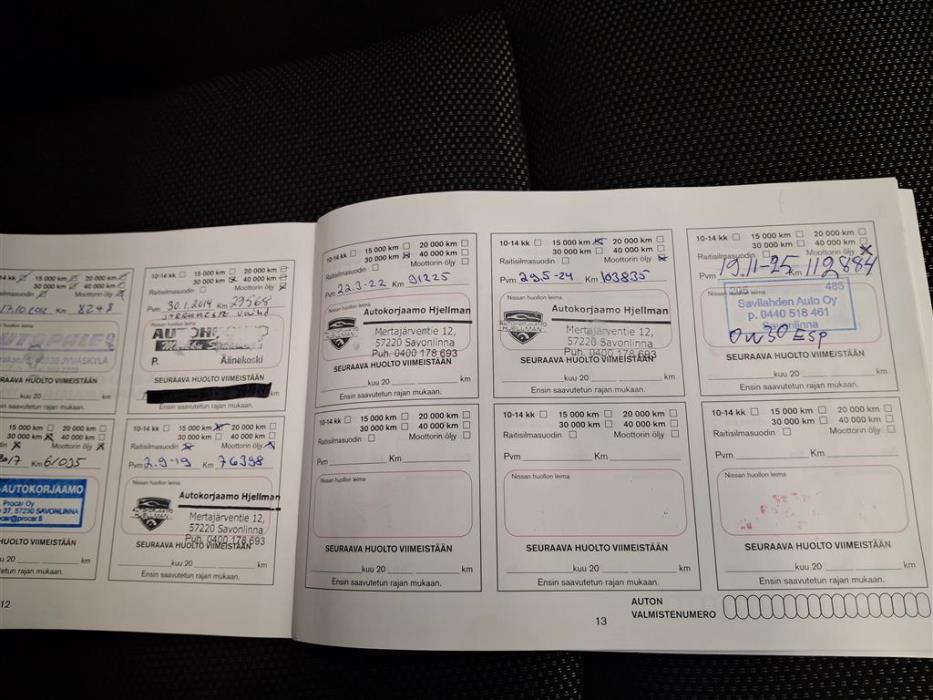 14 kk 15 000 km 20 000 km
30 000 km 40 000 km
Moottorin öljy
Km 8248
JYVÄSKYLÄ
SEURAAVA HUOLTO VIIMEISTÄÄN
kuu 20 km
Ensin saavutetun rajan mukaan.
10-14 kk 15 000 km 20 000 km
30 000 km 40 000 km
Raitisilmasuodin Moottorin öljy
Pvm 30.1.2014 Km 29568
Nissan huollon leima
P. Äänekoski
SEURAAVA HUOLTO VIIMEISTÄÄN
kuu 20 km
Ensin saavutetun rajan mukaan.
15 000 km 20 000 km
30 000 km 40 000 km
Moottorin öljy
Km 61035
-AUTOKORJAAMO
Procar Oy
37, 57230 SAVONLINNA
car@procar.fi
SEURAAVA HUOLTO VIIMEISTÄÄN
kuu 20 km
Ensin saavutetun rajan mukaan.
10-14 kk 15 000 km 20 000 km
30 000 km 40 000 km
Raitisilmasuodin Moottorin öljy
Pvm 2.9-19 Km 76398
Nissan huollon leima
Autokorjaamo Hjellman
AUTOKORJAAMO
HJELLMAN
Mertajärventie 12,
57220 Savonlinna
Puh. 0400 178 693
SEURAAVA HUOLTO VIIMEISTÄÄN
kuu 20 km
Ensin saavutetun rajan mukaan.
12
10-14 kk 15 000 km 20 000 km
30 000 km 40 000 km
Raitisilmasuodin Moottorin öljy
Pvm 22.3-22 Km 91225
Nissan huollon leima
Autokorjaamo Hjellman
AUTOKORJAAMO
HJELLMAN
Mertajärventie 12,
57220 Savonlinna
Puh. 0400 178 693
SEURAAVA HUOLTO VIIMEISTÄÄN
kuu 20 km
Ensin saavutetun rajan mukaan.
10-14 kk 15 000 km 20 000 km
30 000 km 40 000 km
Raitisilmasuodin Moottorin öljy
Pvm 29.5-24 Km 103835
Nissan huollon leima
Autokorjaamo Hjellman
AUTOKORJAAMO
HJELLMAN
Mertajärventie 12,
57220 Savonlinna
Puh. 0400 178 693
SEURAAVA HUOLTO VIIMEISTÄÄN
kuu 20 km
Ensin saavutetun rajan mukaan.
10-14 kk 15 000 km 20 000 km
30 000 km 40 000 km
Raitisilmasuodin Moottorin öljy
Pvm 19.11-25 Km 112884
Nissan huollon leima
295 483
Savilahden Auto Oy
p. 0440 518 461
0W30 ESP
SEURAAVA HUOLTO VIIMEISTÄÄN
kuu 20 km
Ensin saavutetun rajan mukaan.
10-14 kk 15 000 km 20 000 km
30 000 km 40 000 km
Raitisilmasuodin Moottorin öljy
Pvm Km
Nissan huollon leima
SEURAAVA HUOLTO VIIMEISTÄÄN
kuu 20 km
Ensin saavutetun rajan mukaan.
10-14 kk 15 000 km 20 000 km
30 000 km 40 000 km
Raitisilmasuodin Moottorin öljy
Pvm Km
Nissan huollon leima
SEURAAVA HUOLTO VIIMEISTÄÄN
kuu 20 km
Ensin saavutetun rajan mukaan.
10-14 kk 15 000 km 20 000 km
30 000 km 40 000 km
Raitisilmasuodin Moottorin öljy
Pvm Km
Nissan huollon leima
SEURAAVA HUOLTO VIIMEISTÄÄN
kuu 20 km
Ensin saavutetun rajan mukaan.
AUTON
VALMISTENUMERO
13